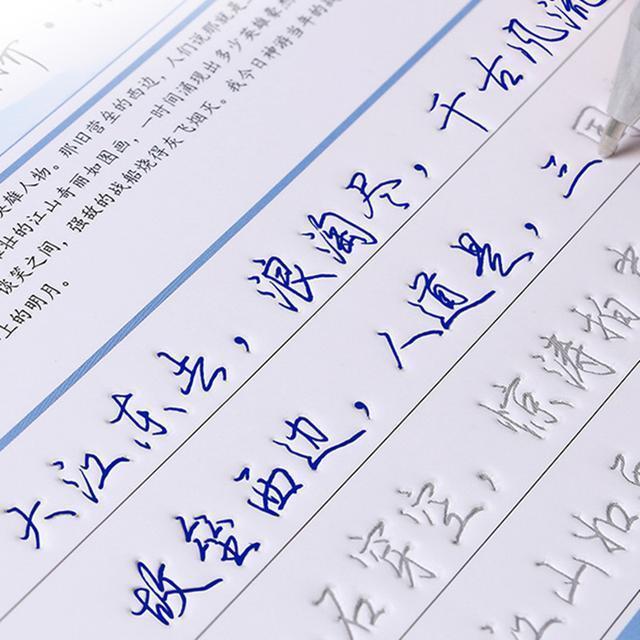 那旧营垒的西边，人们说那就是
的江山奇丽如图画，一时间涌现出多少英雄豪杰
谈笑之间，强敌的战船烧得灰飞烟灭。我今日神游当年的战
上的明月。
大江东去，浪淘尽，千古风流
故垒西边，人道是，三
石穿空，惊涛拍
江山如